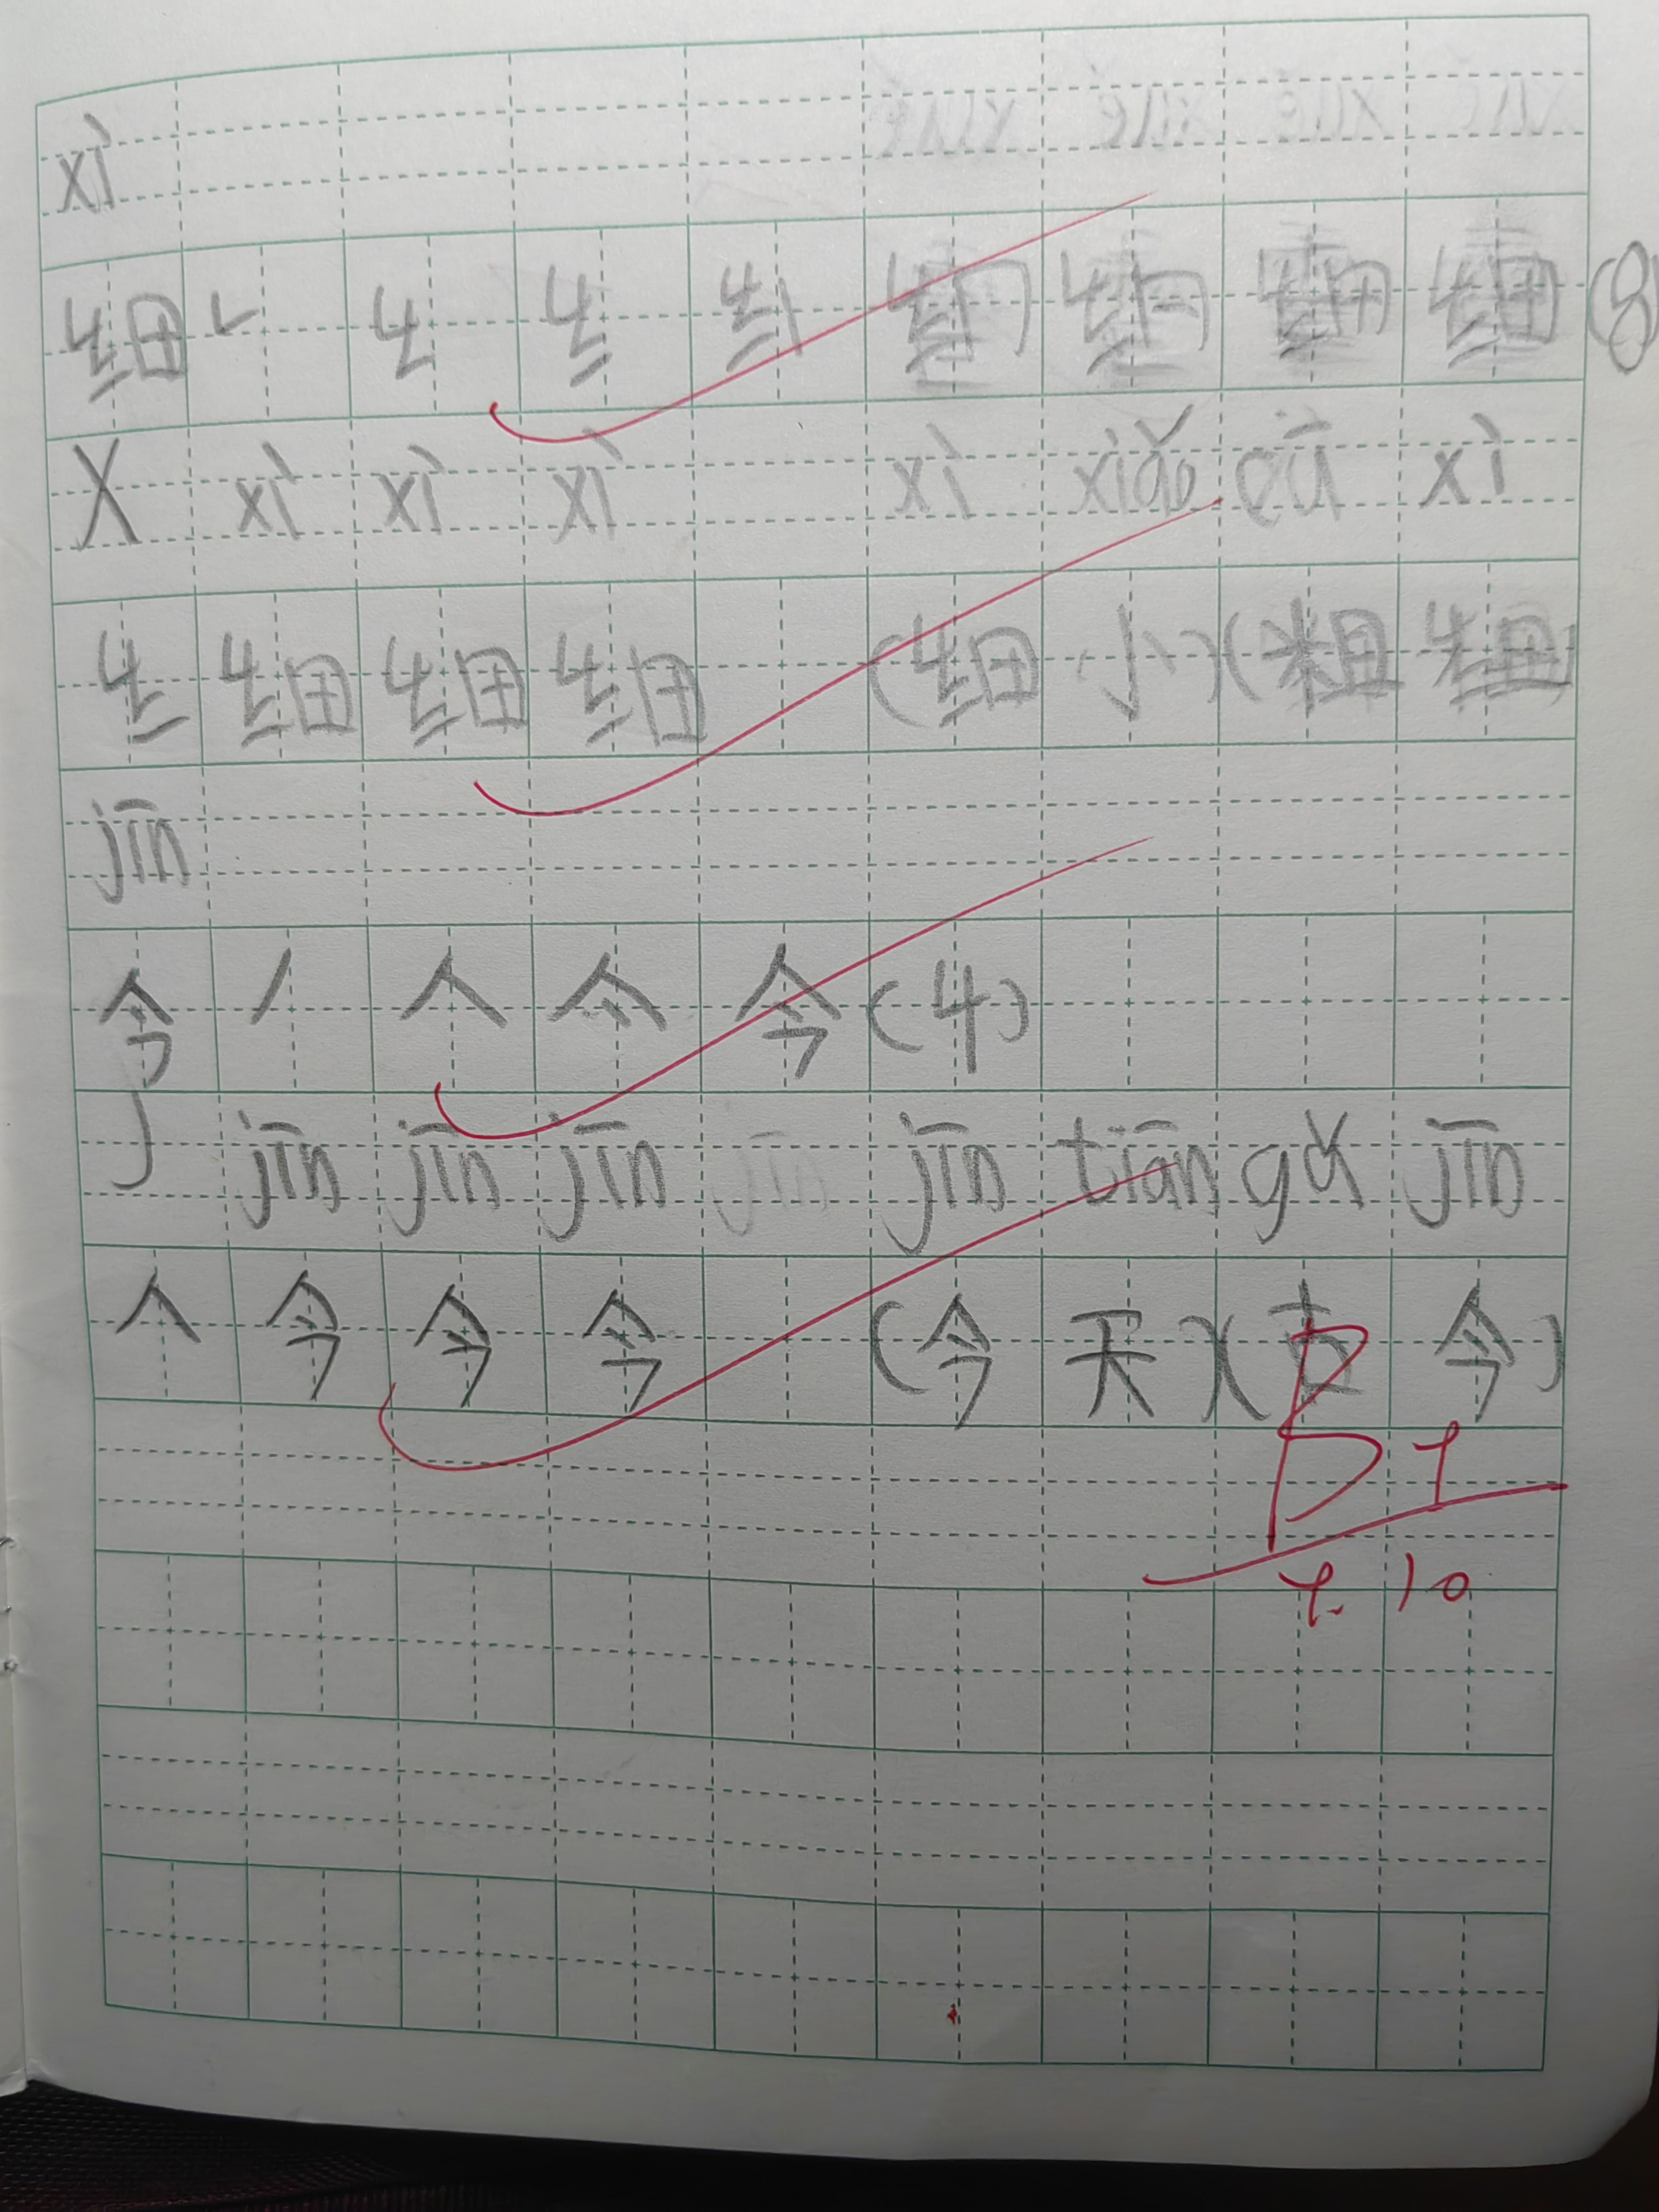 xì
细 纟 纟 细 (8)
X xì xì xì xì xiǎo cū xì
纟 细 细 细 (细 小)(粗 细)
jīn
今 丿 人 亼 今 (4)
j jīn jīn jīn jīn jīn tiān gǔ jīn
人 今 今 今 (今 天)(古 今)
4.10